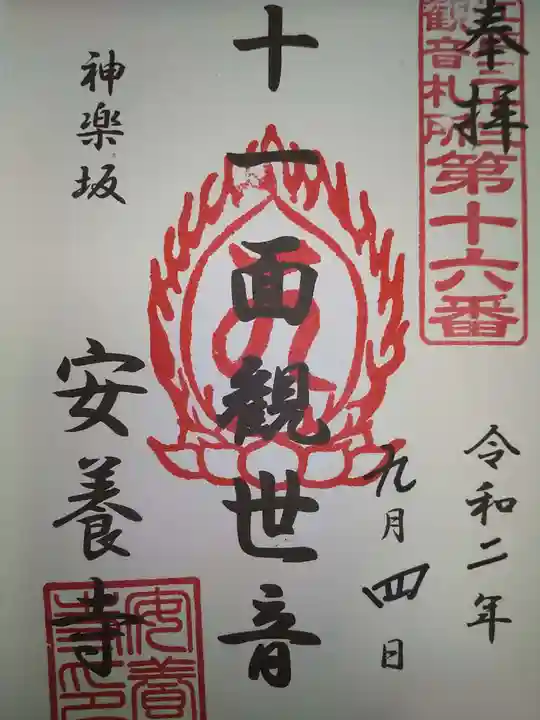 奉拝
観音札所
第十六番
令和二年
九月四日
十一面観世音
神楽坂
安養寺
安養